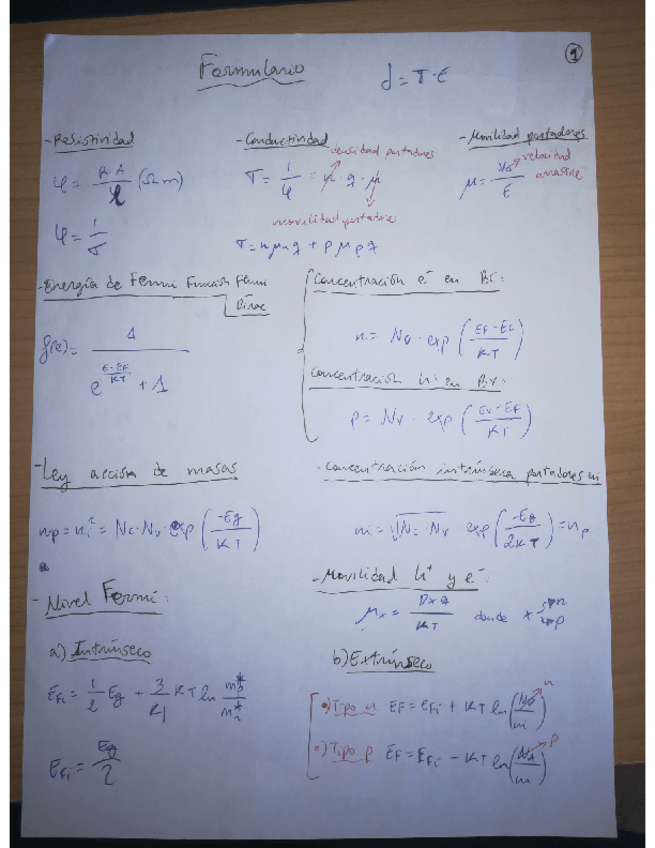 1
Formulario J = σ·E
- Resistividad
φ = R·A/l (Ω m)
φ = 1/σ
- Conductividad
densidad portadores
σ = 1/φ = n·q·μ
movilidad portadores
σ = nμnq + pμpq
- Movilidad portadores
velocidad
arrastre
μ = vd/E
- Energía de Fermi Función Fermi
Dirac
f(E) = 1/(e^((E-EF)/KT) + 1)
Concentración e⁻ en BC:
n = Nc · exp((EF-EC)/KT)
Concentración h⁺ en BV:
p = Nv · exp((Ev-EF)/KT)
- Ley acción de masas
np = ni² = Nc·Nv·exp(-Eg/KT)
- Concentración intrínseca portadores ni
ni = √(Nc·Nv) exp(-Eg/2KT) = np
- Movilidad h⁺ y e⁻:
μx = Dx q/KT donde x n p
- Nivel Fermi:
a) Intrínseco
EFi = 1/2 Eg + 3/4 KT ln mp*/mn*
EFi = Eg/2
b) Extrínseco
•) Tipo n EF = EFi + KT ln(ND/ni) n
•) Tipo p EF = EFi - KT ln(NA/ni) p